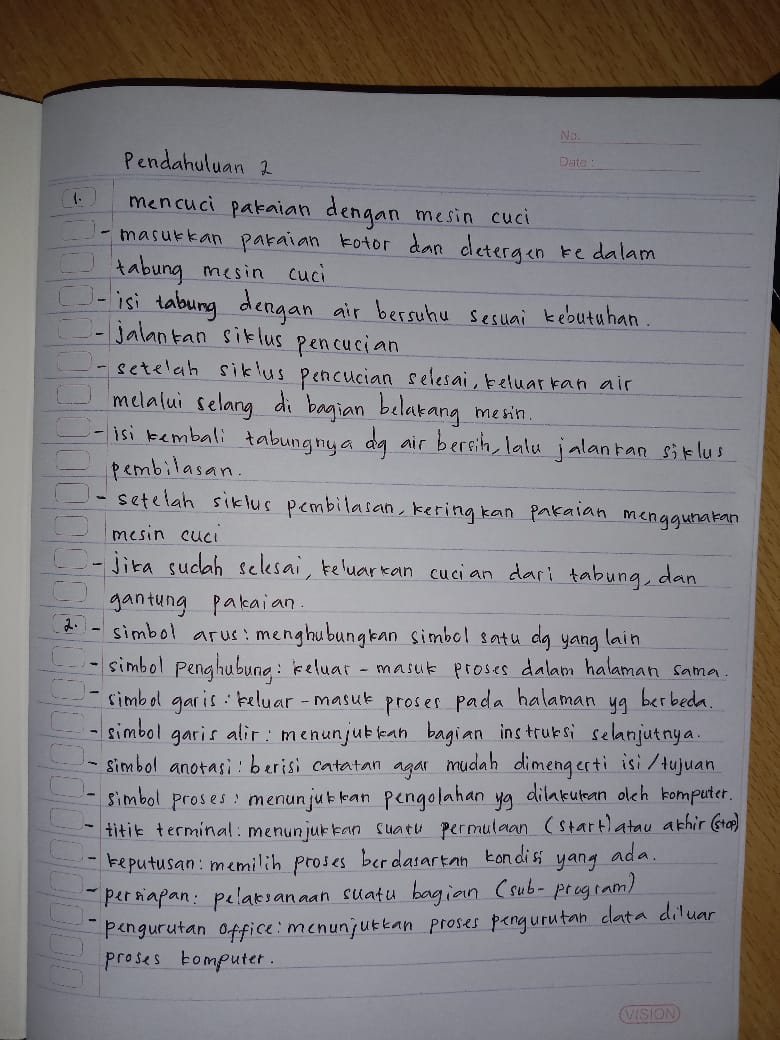 No.
Date :
Pendahuluan 2
1. mencuci pakaian dengan mesin cuci
- masukkan pakaian kotor dan detergen ke dalam
tabung mesin cuci
- isi tabung dengan air bersuhu sesuai kebutuhan.
- jalankan siklus pencucian
- setelah siklus pencucian selesai, keluarkan air
melalui selang di bagian belakang mesin.
- isi kembali tabungnya dg air bersih, lalu jalankan siklus
pembilasan.
- setelah siklus pembilasan, keringkan pakaian menggunakan
mesin cuci
- jika sudah selesai, keluarkan cucian dari tabung, dan
gantung pakaian.
2. - simbol arus : menghubungkan simbol satu dg yang lain
- simbol penghubung : keluar - masuk proses dalam halaman sama.
- simbol garis : keluar - masuk proses pada halaman yg berbeda.
- simbol garis alir : menunjukkan bagian instruksi selanjutnya.
- simbol anotasi : berisi catatan agar mudah dimengerti isi / tujuan
- simbol proses : menunjukkan pengolahan yg dilakukan oleh komputer.
- titik terminal : menunjukkan suatu permulaan (start) atau akhir (stop)
- keputusan : memilih proses berdasarkan kondisi yang ada.
- persiapan : pelaksanaan suatu bagian (sub-program)
- pengurutan office : menunjukkan proses pengurutan data diluar
proses komputer.
VISION